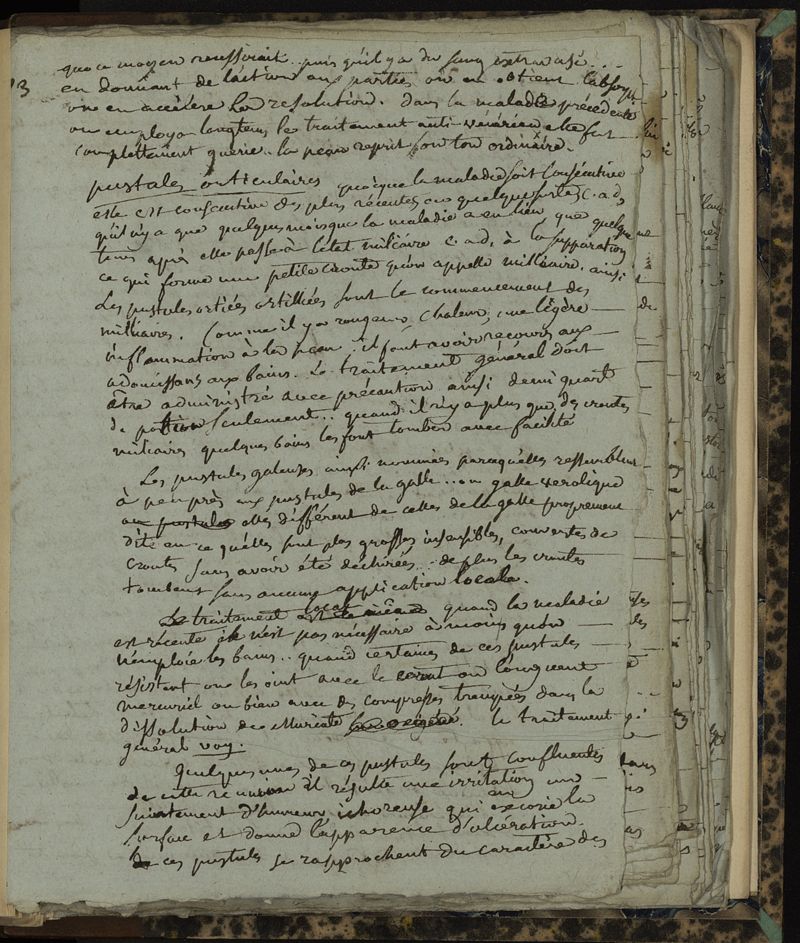 que ce moyen reussirait.. puis qu'il y a du sang extravasé...
en donnant de l'action aux parties on en obtient l'absorp
on en accélère la resolution. dans la maladie precedente
on employa longtems le traitement anti-vénérien elle fut
complettement guerie.. la peau reprit son ton ordinaire.
pustules orticulaires quoique la maladie soit consécutive
elle est consecutive des plus récentes en quelque sorte c.a.d,
qu'il n'y a que quelques mois que la maladie a eu lieu que quelque
tems après elle passe à l'état miliaire c.a.d. à la suppuration
ce qui forme une petite croute qu'on appelle milliaire. ainsi
Les pustules ortiées ortillées sont le commencement des
milliaires. Comme il y a rougeur, chaleur, une légère
inflammation à la peau. il faut avoir recours aux
adoucissans aux bains. Le traitement général doit
être administré avec précaution ainsi demi quart
de portion seulement.. quand il n'y a plus que des croutes
miliaires quelques bains les font tomber avec facilité
Les pustules galeuses, ainsi nommées parcequ'elles ressemblent
à peu près aux pustules de la galle.. ou galle verolique
ou pustules elles différent de celles de la galle proprement
dite en ce qu'elles sont plus grosses insensibles, couvertes de
croutes sans avoir été déchirées.. de plus les croutes
tombent sans aucune application locale.
Le traitement local est le même quand la maladie
est récente il n'est pas nécessaire à moins qu'on
n'emploie les bains.. quand certaines de ces pustules
résistent on les oint avec le cerat ou l'onguent
mercuriel ou bien avec des compresses trempées dans la
dissolution de Muriate. le traitement
général voy.
Quelques unes de ces pustules sont confluentes
de cette reunion il résulte une irritation un
suintement d'humeur ichoreuse qui en excorie la
surface et donne l'apparence d'ulcération.
ces pustules se rapprochent du caractère des